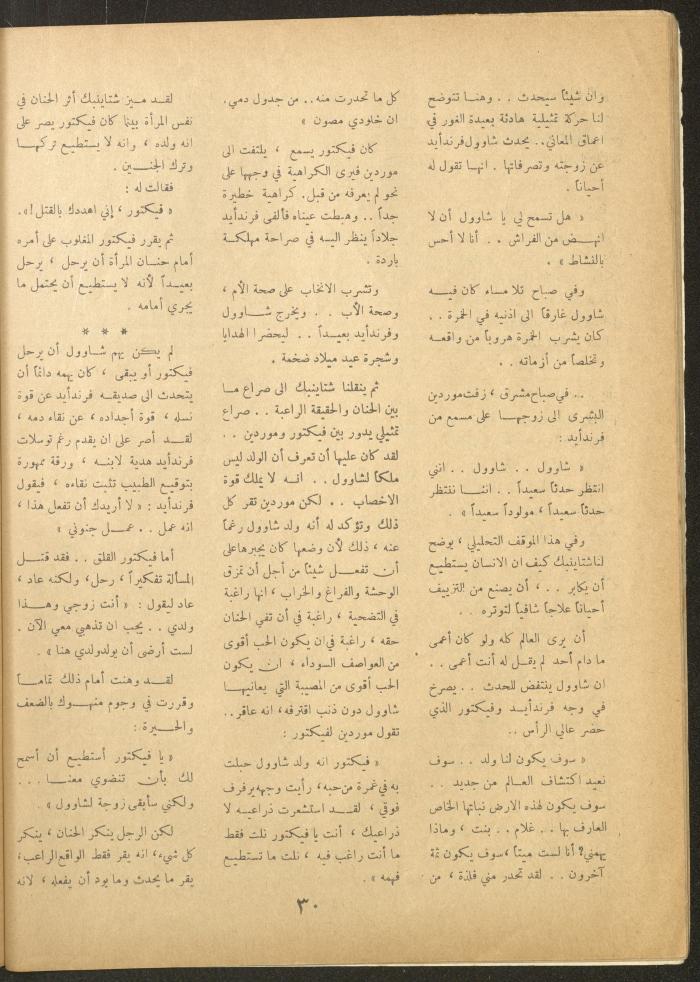 وان شيئاً سيحدث . . وهنـا تتوضح
لنا حركة تمثيلية هادئة بعيدة الغور في
اعماق المعاني.. يحدث شاوول فرندأيد
عن زوجته وتصرفاتها . انهـا تقول له
أحياناً .
« هل تسمح لي يا شاوول أن لا
انهـض من الفراش . . أنا لا أحس
بالنشاط » .
وفي صباح تلا مساء كان فيــه
شاوول غارقاً الى اذنيه في الخمرة . .
كان يشرب الخمرة هروباً من واقعه
وتخلصاً من أزماته . .
.. في صباح مشرق ، زفت موردين
البشرى الى زوجهـا على مسمع من
فرندأيد :
« شاوول . . شاوول . . انني
انتظر حدثاً سعيداً . . اننـا ننتظر
حدثاً سعيداً ، مولوداً سعيداً » .
وفي هذا الموقف التحليلي ، يوضح
لنا شتاينبك كيف ان الانسان يستطيع
أن يكابر . . ، أن يصنع من التزييف
أحياناً علاجاً شافياً لتوتره . .
أن يرى العالم كله ولو كان أعمى
ما دام أحد لم يقل له أنت أعمى . .
ان شاوول ينتفض للحدث . . يصرخ
في وجه فرندأيـد وفيكتور الذي
حضر عالي الرأس ..
« سوف يكون لنا ولد . . سوف
نعيد اكتشاف العـالم من جديد . .
سوف يكون لهذه الارض نباتها الخاص
العارف بها . . غلام . . بنت ، وماذا
يهمني؟ أنا لست ميتاً ، سوف يكون ثمة
آخرون . . لقد تحدر مني فلذة ، من
كل ما تحدرت منه . . من جدول دمي.
ان خلودي مصون »
كان فيكتور يسمع ، يلتفت الى
موردين فيرى الكراهية في وجهها على
نحو لم يعرفه من قبل. كراهية خطيرة
جداً . . وهبطت عيناه فألفى فرندأيد
جلاداً ينظر اليـه في صراحة مهلكـة
باردة .
وتشرب الانخاب على صحة الأم ،
وصحة الأب . . ويخرج شــاوول
وفرندأيد بعيـداً . . ليحضرا الهدايا
وشجرة عيد ميلاد ضخمة .
ثم ينقلنا شتاينبك الى صراع مـا
بين الحنان والحقيقة الراعبة . . صراع
تمثيلي يدور بين فيكتور وموردين . .
لقد كان عليها أن تعرف أن الولد ليس
ملكاً لشاوول . . انه لا يملك قوة
الاخصاب . . لكن موردين تقر كل
ذلك وتؤكد له أنه ولد شاوول رغماً
عنه ، ذلك لأن وضعها كان يجبرها على
أن تفعـل شيئاً من أجل أن تمزق
الوحشة والفراغ والخراب ، انها راغبة
في التضحية ، راغبة في أن تفي الحنان
حقه ، راغبة في ان يكون الحب أقوى
من العواصف السوداء ، ان يكون
الحب أقوى من المصيبة التي يعانيهـا
شاوول دون ذنب اقترفه، انه عاقر..
تقول موردين لفيكتور :
« فيكتور انه ولد شاوول حبلت
به في غمرة من حبه، رأيت وجهه يرفرف
فوقي ، لقــد استشعرت ذراعيـه لا
ذراعيك ، أنت يا فيكتور نلت فقط
ما أنت راغب فيه ، نلت ما تستطيع
فهمه » .
لقـد ميز شتاينبك أثر الحنان في
نفس المرأة بينما كان فيكتور يصر على
انه ولده ، وانه لا يستطيع تركهـا
وترك الجنــين .
فقالت له :
« فيكتور ، إني اهددك بالقتل !».
ثم يقرر فيكتور المغلوب على أمره
أمام حنـان المرأة أن يرحل ، يرحل
بعيـداً لأنه لا يستطيـع أن يحتمل ما
يجري أمامه .
* * *
لم يكن يهم شـاوول أن يرحل
فيكتور أو يبقى ، كان يهمه دائماً أن
يتحدث الى صديقـه فرندأيد عن قوة
نسله ، قوة أجداده ، عن نقاء دمه ،
لقـد أصر على ان يقدم رغم توسلات
فرندأيد هدية لابنـه ، ورقة ممهورة
بتوقيع الطبيب تثبت نقاءه ، فيقول
فرندأيد : « لا أريدك أن تفعل هذا ،
انه عمل . . عمـل جنوني »
أما فيكتور القلق . . فقد قتـل
المسألة تفكيراً ، رحل، ولكنه عاد ،
عاد ليقول : « أنت زوجي وهـذا
ولدي . . يجب ان تذهبي معي الآن .
لست أرضى أن يولد ولدي هنا » .
لقـد وهنت أمام ذلك تمامـاً
وقررت في وجوم منهـوك بالضعف
والحــيرة :
« يا فيكتور أستطيـع أن أسمح
لك بأن تنضوي معنـا . . .
ولكني سأبقى زوجة لشاوول » .
لكن الرجل ينكر الحنان ، ينكر
كل شيء، انه يقر فقط الواقع الراعب،
يقر ما يحدث وما يود أن يفعله ، لانه
٣٠